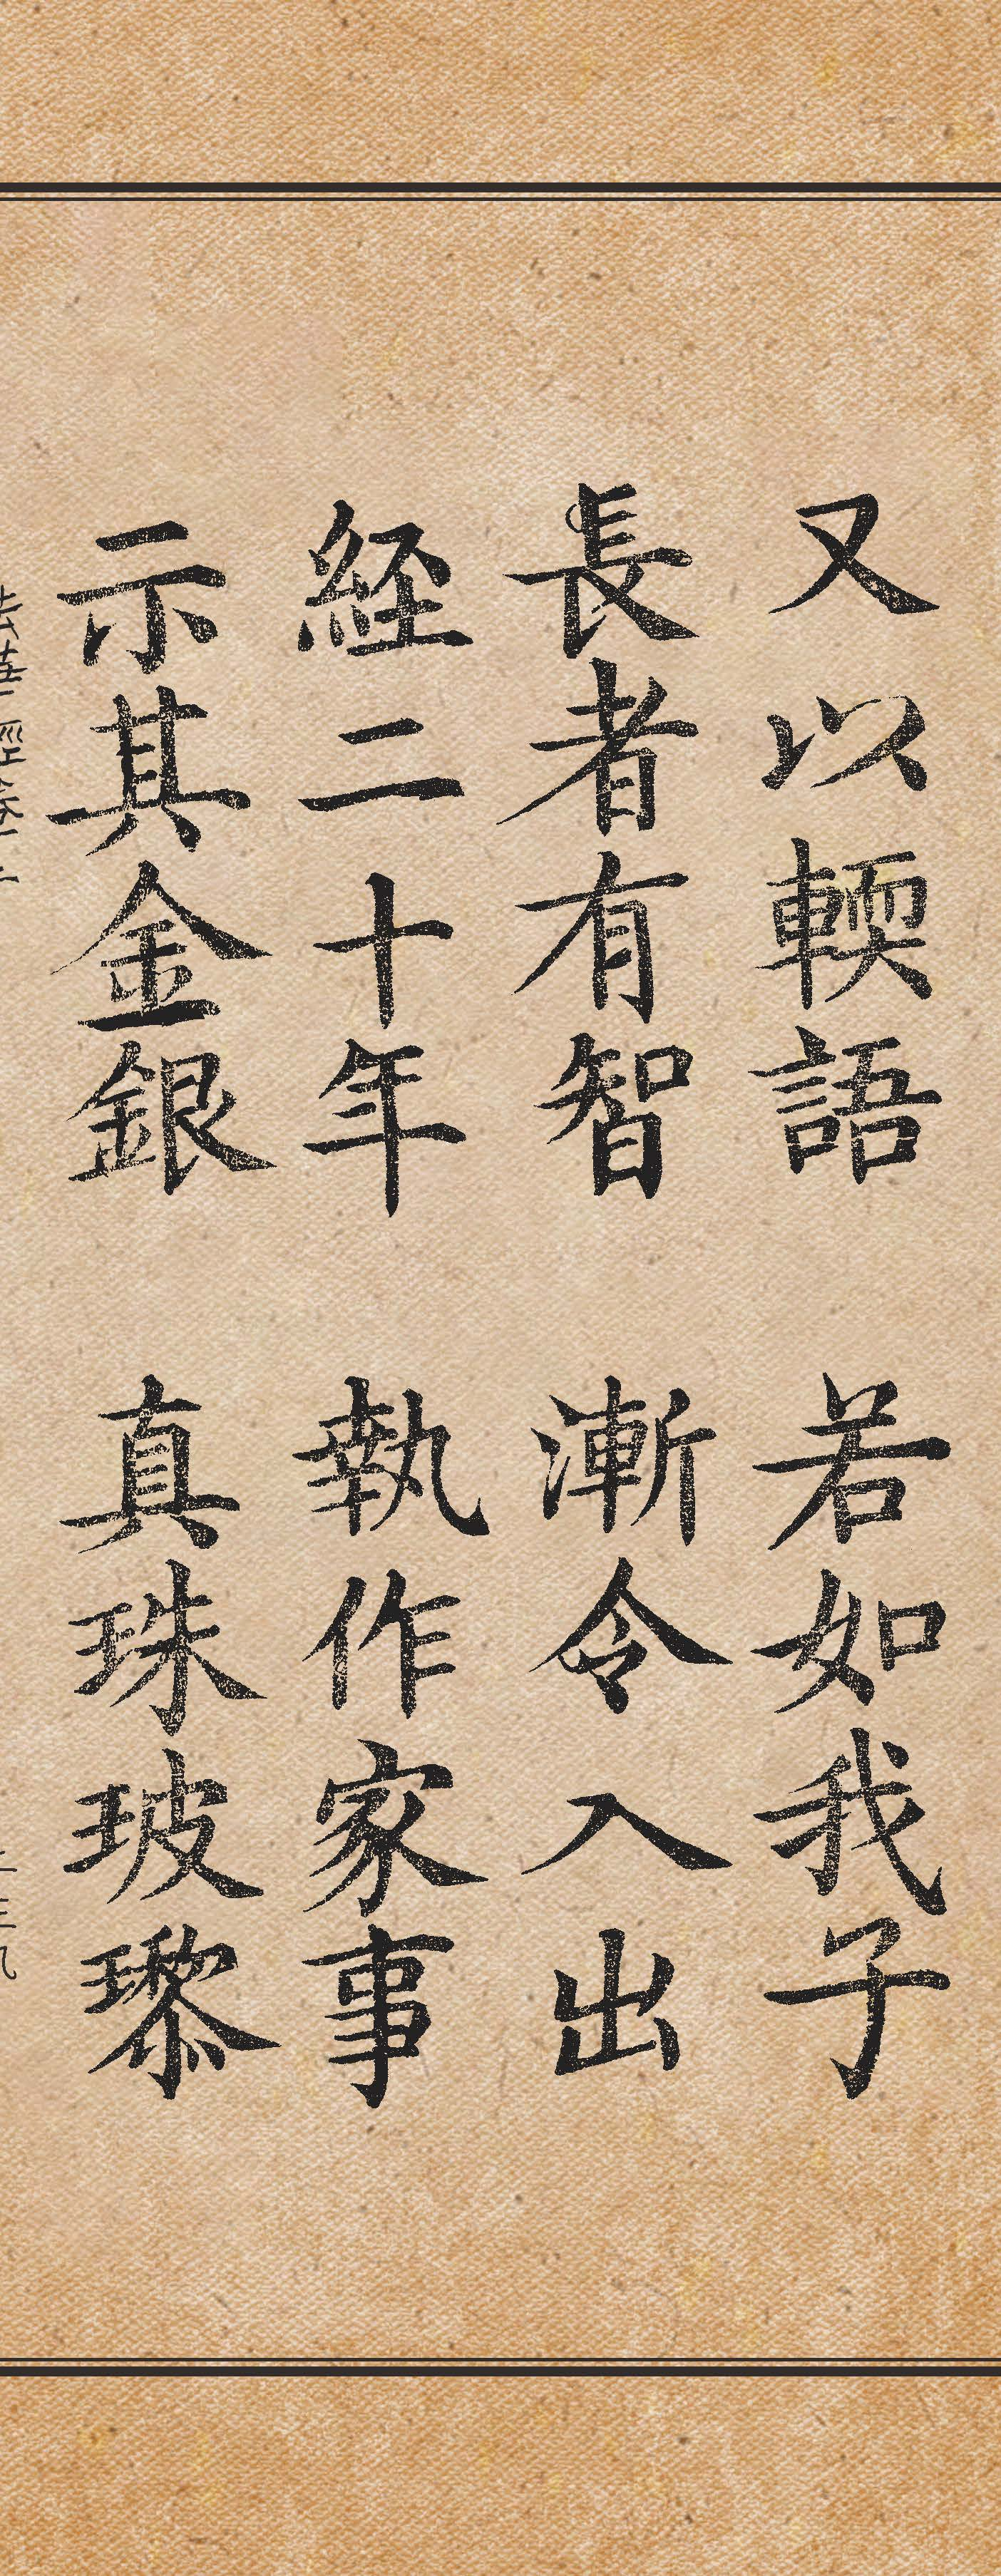 又以輭語　若如我子
長者有智　漸令入出
経二十年　執作家事
示其金銀　真珠玻瓈